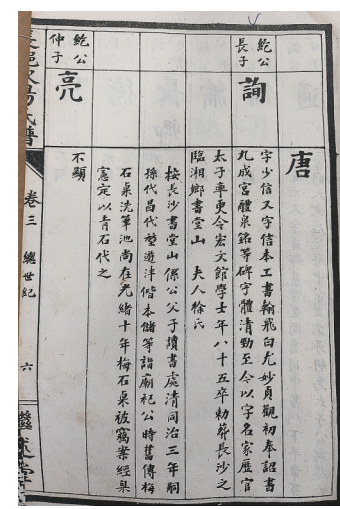 唐
紇公
長子
詢
字少信又字信本工書翰飛白尤妙貞觀初奉詔書
九成宮醴泉銘等碑字體清勁至今以字名家歷官
太子率更令宏文館學士年八十五卒勅葬長沙之
臨湘鄉書堂山 夫人徐氏
按長沙書堂山係公父子讀書處清同治三年嗣
孫代昌代堃遊泮偕本儲等詣廟祀公時舊傳梅
石桌洗筆池尚在光緒十年梅石桌被竊案經臬
憲定以青石代之
紇公
仲子
亮
不顯
卷三
繼世紀
六